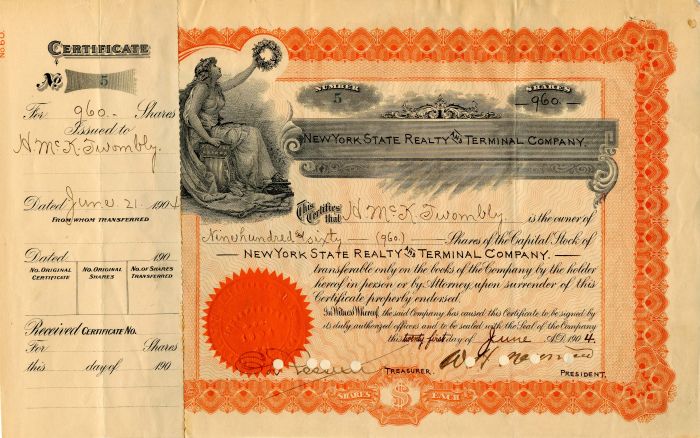 No 60.
CERTIFICATE
No. 5
For 960.- Shares
Issued to
H. McK. Twombly.
Dated June 21. 1904
FROM WHOM TRANSFERRED
Dated 190
NO. ORIGINAL CERTIFICATE
NO. ORIGINAL SHARES
NO. OF SHARES TRANSFERRED
Received CERTIFICATE NO.
For Shares
this day of 190
NUMBER
5
SHARES
960.
NEW YORK STATE REALTY AND TERMINAL COMPANY.
This Certifies that H. McK. Twombly is the owner of
Nine hundred and sixty — (960.) — Shares of the Capital Stock of
— NEW YORK STATE REALTY AND TERMINAL COMPANY. —
transferable only on the books of the Company by the holder
hereof in person or by Attorney upon surrender of this
Certificate properly endorsed.
In Witness Whereof, the said Company has caused this Certificate to be signed by
its duly authorized officers and to be sealed with the Seal of the Company
this twenty first day of June A.D. 1904
TREASURER.
PRESIDENT.
SHARES
$
EACH